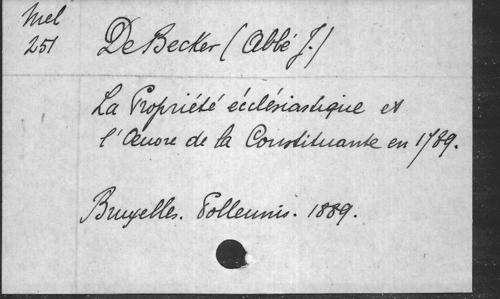 Mel
251
De Becker (Abbé J.)
La Propriété écclésiastique et
l'Œuvre de la Constituante en 1789.
Bruxelles. Polleunis. 1889.